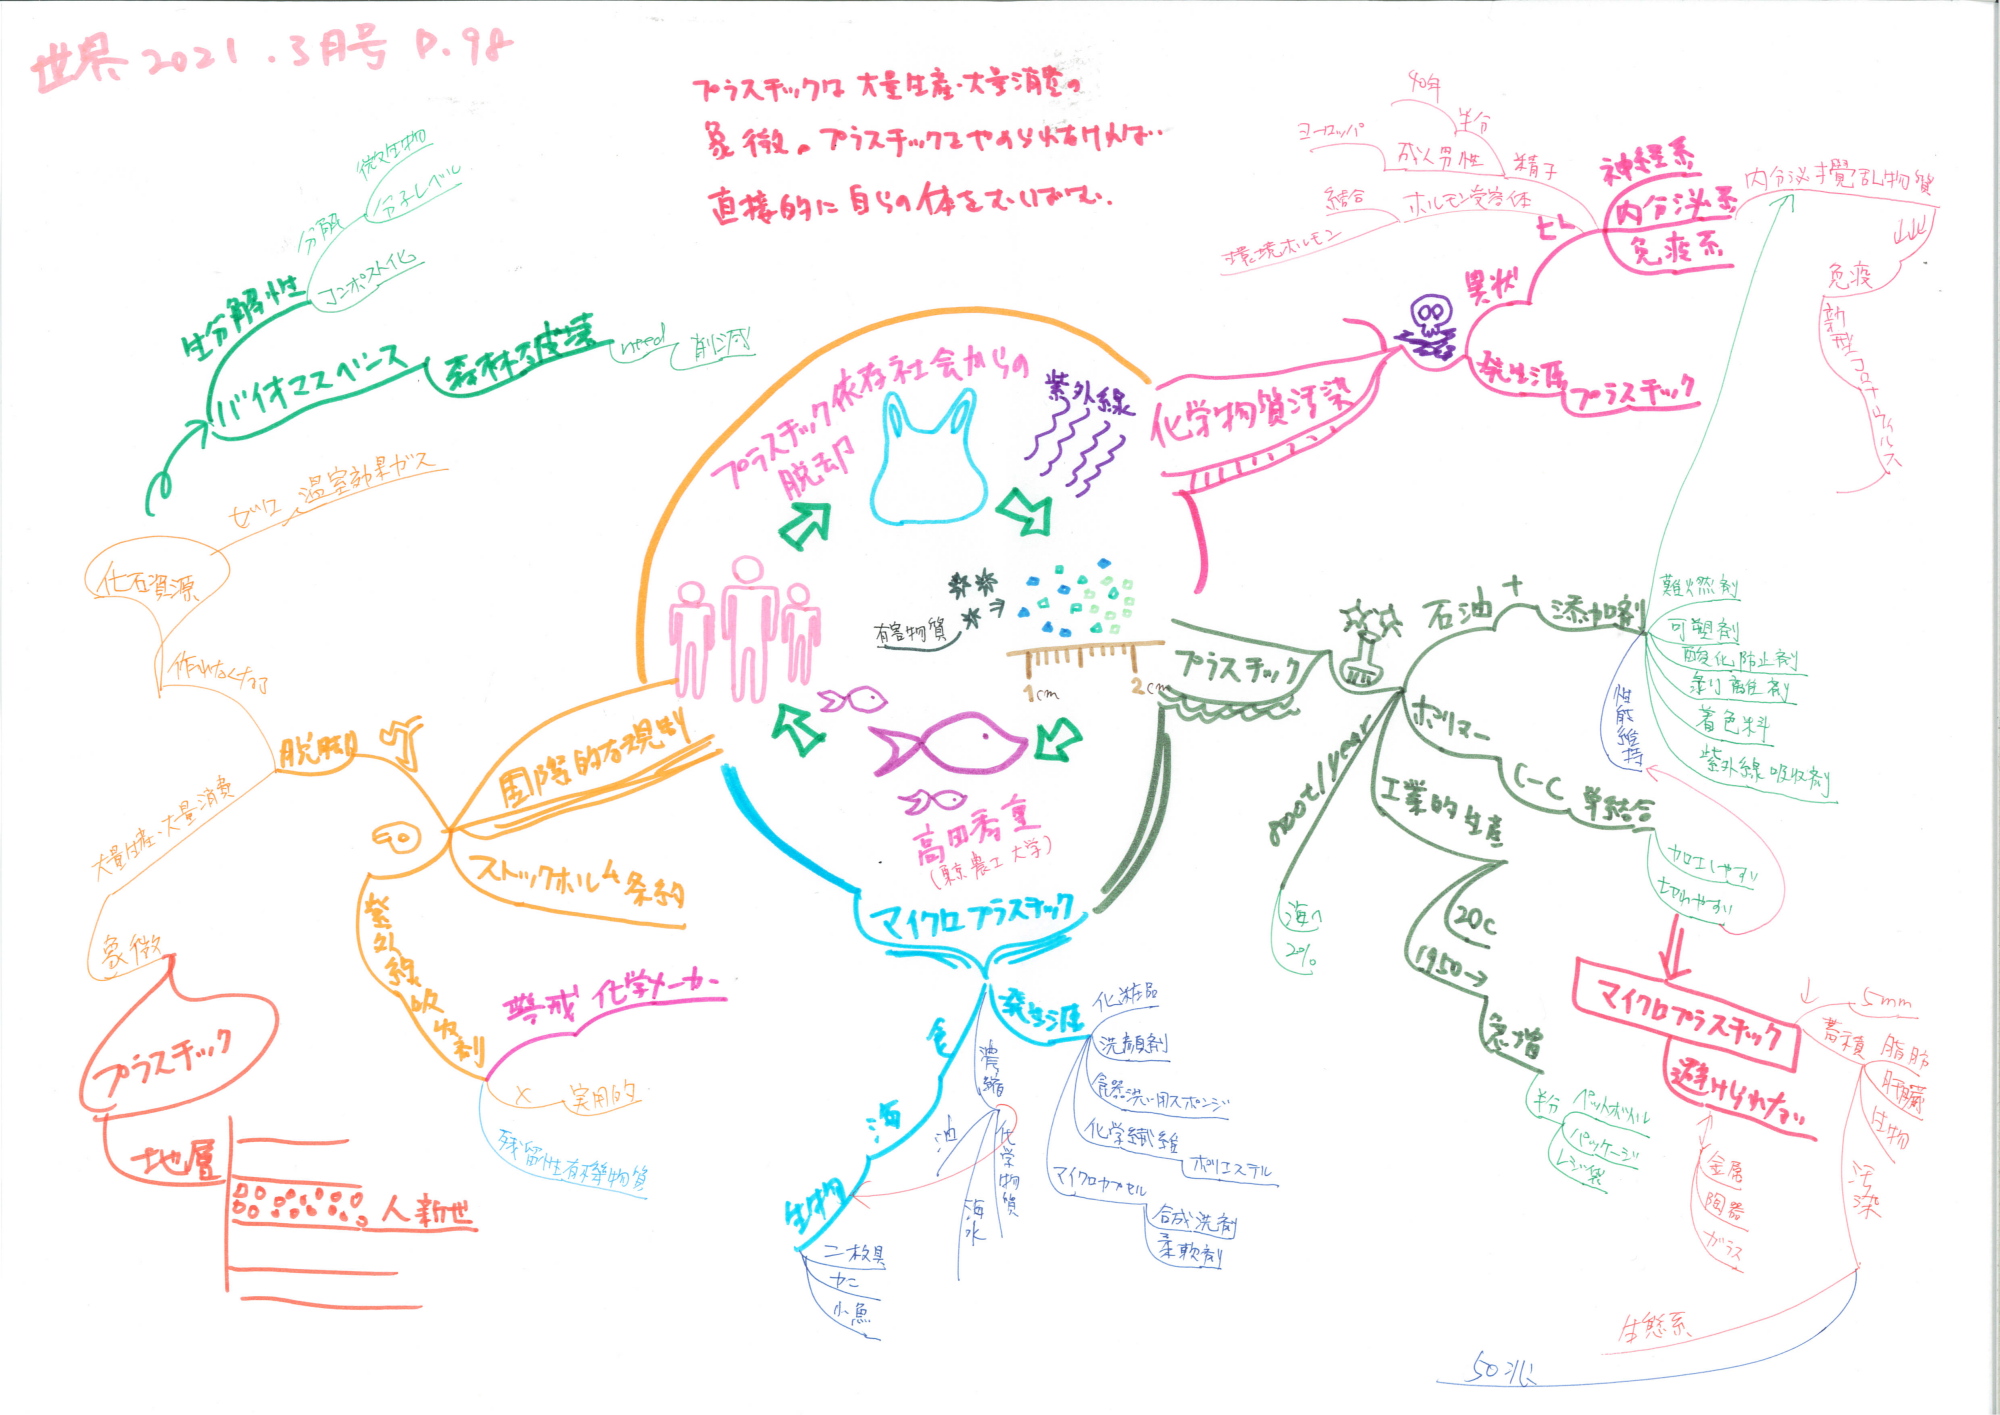 世界 2021.3月号 P.98
プラスチックは大量生産・大量消費の
象徴。プラスチックをやめられなければ…
直接的に自らの体をむしばむ。
プラスチック依存社会からの
脱却
紫外線
有害物質
1cm
2cm
高田秀重
(東京農工大学)
化学物質汚染
異状
ヒト
神経系
内分泌系
免疫系
内分泌攪乱物質
免疫
新型コロナウィルス
精子
半分
40年
成人男性
ヨーロッパ
ホルモン受容体
結合
環境ホルモン
発生源
プラスチック
プラスチック
石油
+
添加剤
難燃剤
可塑剤
酸化防止剤
剥離性剤
着色料
紫外線吸収剤
性能維持
ポリマー
C-C
単結合
加工しやすい
切れやすい
マイクロプラスチック
避けられない
金属
陶器
ガラス
5mm
蓄積
脂肪
肝臓
生物
汚染
生態系
50兆
工業的生産
20C
1950→
急増
半分
ペットボトル
パッケージ
レジ袋
海へ
2%
マイクロプラスチック
発生源
化粧品
洗顔剤
食器洗い用スポンジ
化学繊維
ポリエステル
マイクロカプセル
合成洗剤
柔軟剤
濃縮
化学物質
油
海水
海
生物
二枚貝
カニ
小魚
国際的な規制
ストックホルム条約
紫外線吸収剤
警戒 化学メーカー
×
実用的
残留性有機物質
脱却
作れなくなる
化石資源
ゼロ
温室効果ガス
大量生産・大量消費
象徴
プラスチック
地層
人新世
バイオマスベース
生分解性
分解
微生物
分子レベル
コンポスト化
森林破壊
need
削減